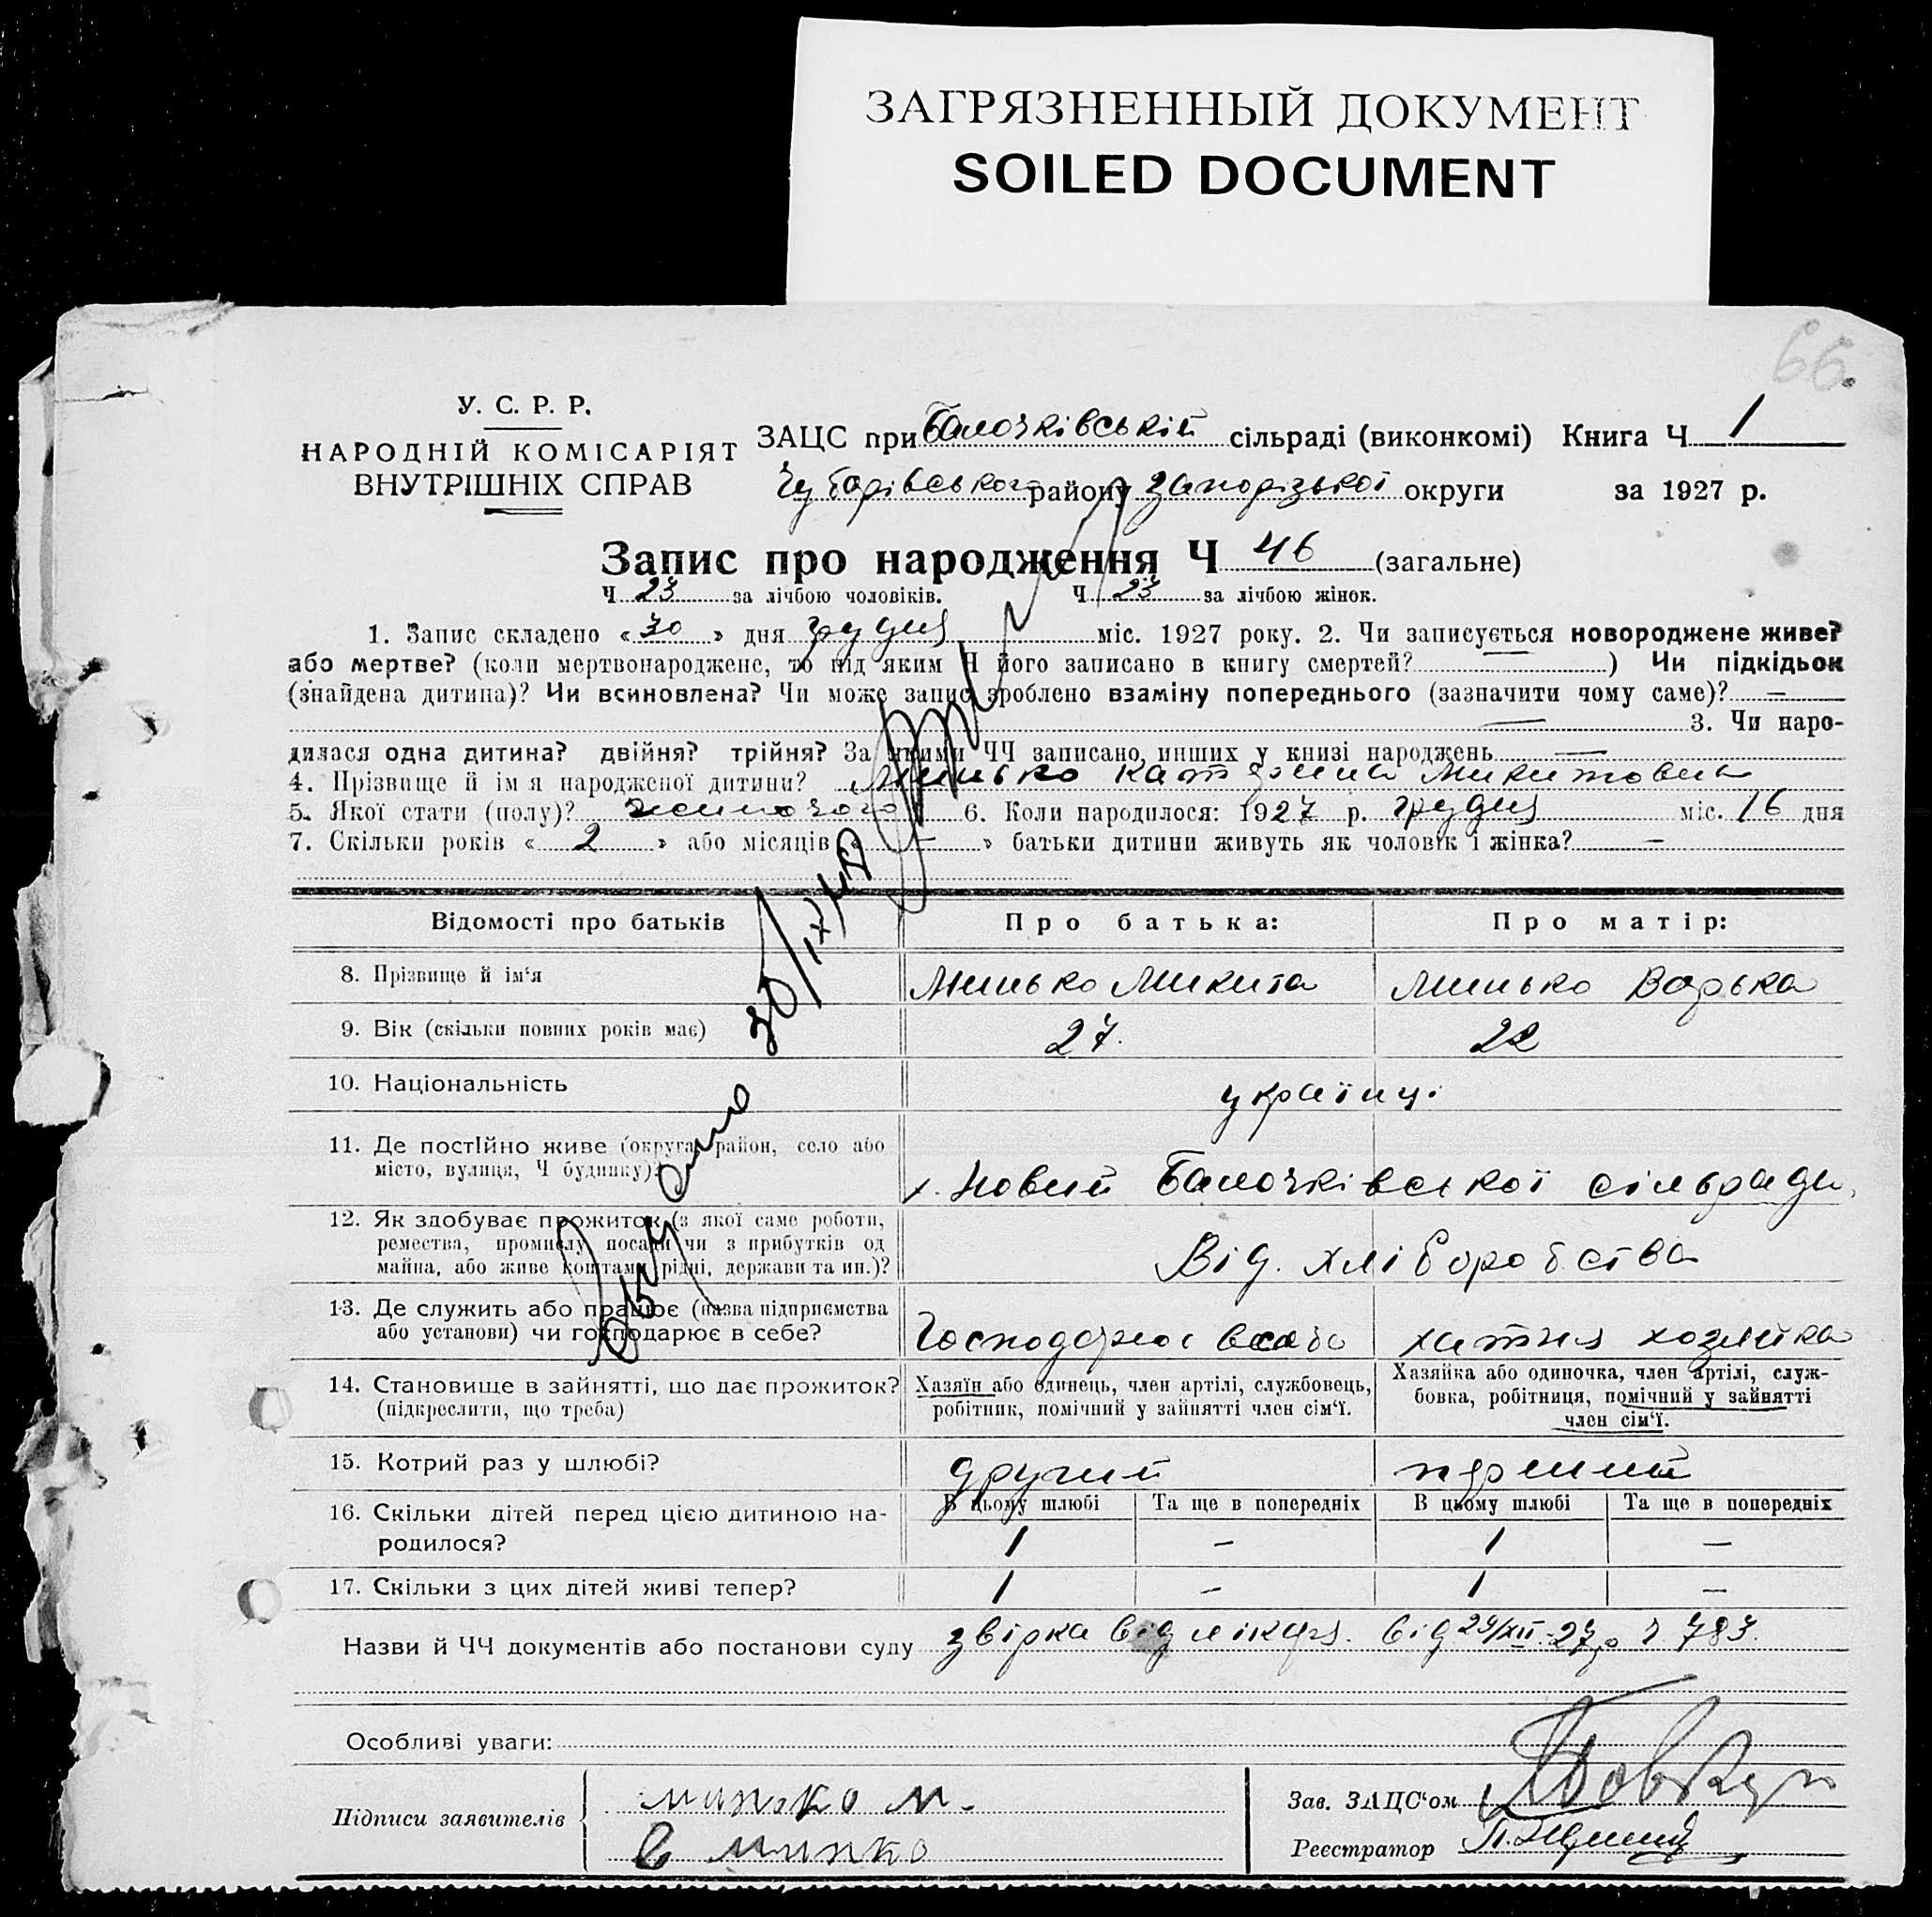 ЗАГРЯЗНЕННЫЙ ДОКУМЕНТ
SOILED DOCUMENT
66.
У. С. Р. Р.
НАРОДНІЙ КОМІСАРІЯТ
ВНУТРІШНІХ СПРАВ
ЗАЦС при Балочківській сільраді (виконкомі) Книга Ч 1
Чубарівського району Запорізької округи за 1927 р.
Запис про народження Ч 46 (загальне)
Ч 23 за лічбою чоловіків. Ч 23 за лічбою жінок.
1. Запис складено «30» дня грудня міс. 1927 року. 2. Чи записується новороджене живе?
або мертве? (коли мертвонароджене, то під яким Ч його записано в книгу смертей? —) Чи підкідьок
(знайдена дитина)? Чи всиновлена? Чи може запис зроблено взаміну попереднього (зазначити чому саме)? —
— 3. Чи наро-
дилася одна дитина? двійня? трійня? За якими ЧЧ записано инших у книзі народжень —
4. Прізвище й ім'я народженої дитини? Минько Катерина Микитовна
5. Якої стати (полу)? жиночого 6. Коли народилося: 1927 р. грудня міс. 16 дня
7. Скільки років «2» або місяців «—» батьки дитини живуть як чоловік і жінка? —
Відомості про батьків Про батька: Про матір:
8. Прізвище й ім'я Минько Микита Минько Варька
9. Вік (скільки повних років має) 27. 22
10. Національність українці
11. Де постійно живе (округа, район, село або
місто, вулиця, Ч будинку)? х. Новий Балочківської сільради
12. Як здобуває прожиток (з якої саме роботи,
ремества, промислу посади чи з прибутків од
майна, або живе коштами рідні, держави та ин.)? Від. хліборобства
13. Де служить або працює (назва підприємства
або установи) чи господарює в себе? Господарює в себе хатня хозяйка
14. Становище в зайнятті, що дає прожиток?
(підкреслити, що треба)
Хазяїн або одинець, член артілі, службовець,
робітник, помічний у зайнятті член сім'ї.
Хазяйка або одиночка, член артілі, служ-
бовка, робітниця, помічний у зайнятті
член сім'ї.
15. Котрий раз у шлюбі? другий перший
В цьому шлюбі Та ще в попередніх В цьому шлюбі Та ще в попередніх
16. Скільки дітей перед цією дитиною на-
родилося? 1 — 1 —
17. Скільки з цих дітей живі тепер? 1 — 1 —
Назви й ЧЧ документів або постанови суду звірка від лікаря. від 29/XII-27р Ч 783.
Особливі уваги:
Підписи заявителів
минько м.
в минко
Зав. ЗАЦС'ом
Реєстратор